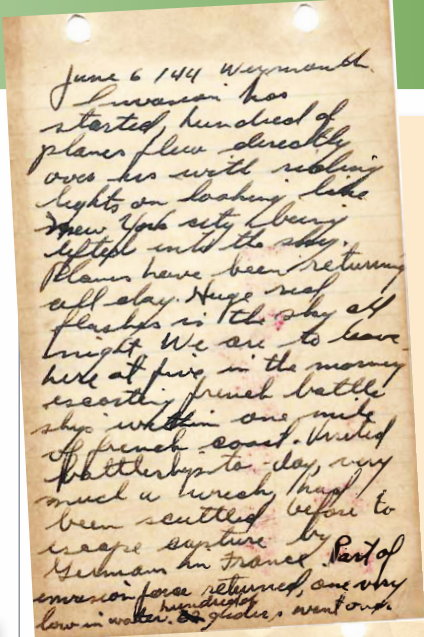 June 6/44 Weymouth.
Invasion has
started, hundred of
planes flew directly
over us with riding
lights on looking like
New York city being
lifted into the sky.
Planes have been returning
all day. Huge red
flashes in the sky all
night. We are to leave
here at five in the morning
escorting french battle
ship within one mile
of french coast. Visited
battleship to-day, very
much a wreck, had
been scuttled before to
escape capture by
Germans in France. Part of
invasion force returned, one very
low in water. hundreds of
gliders went over.